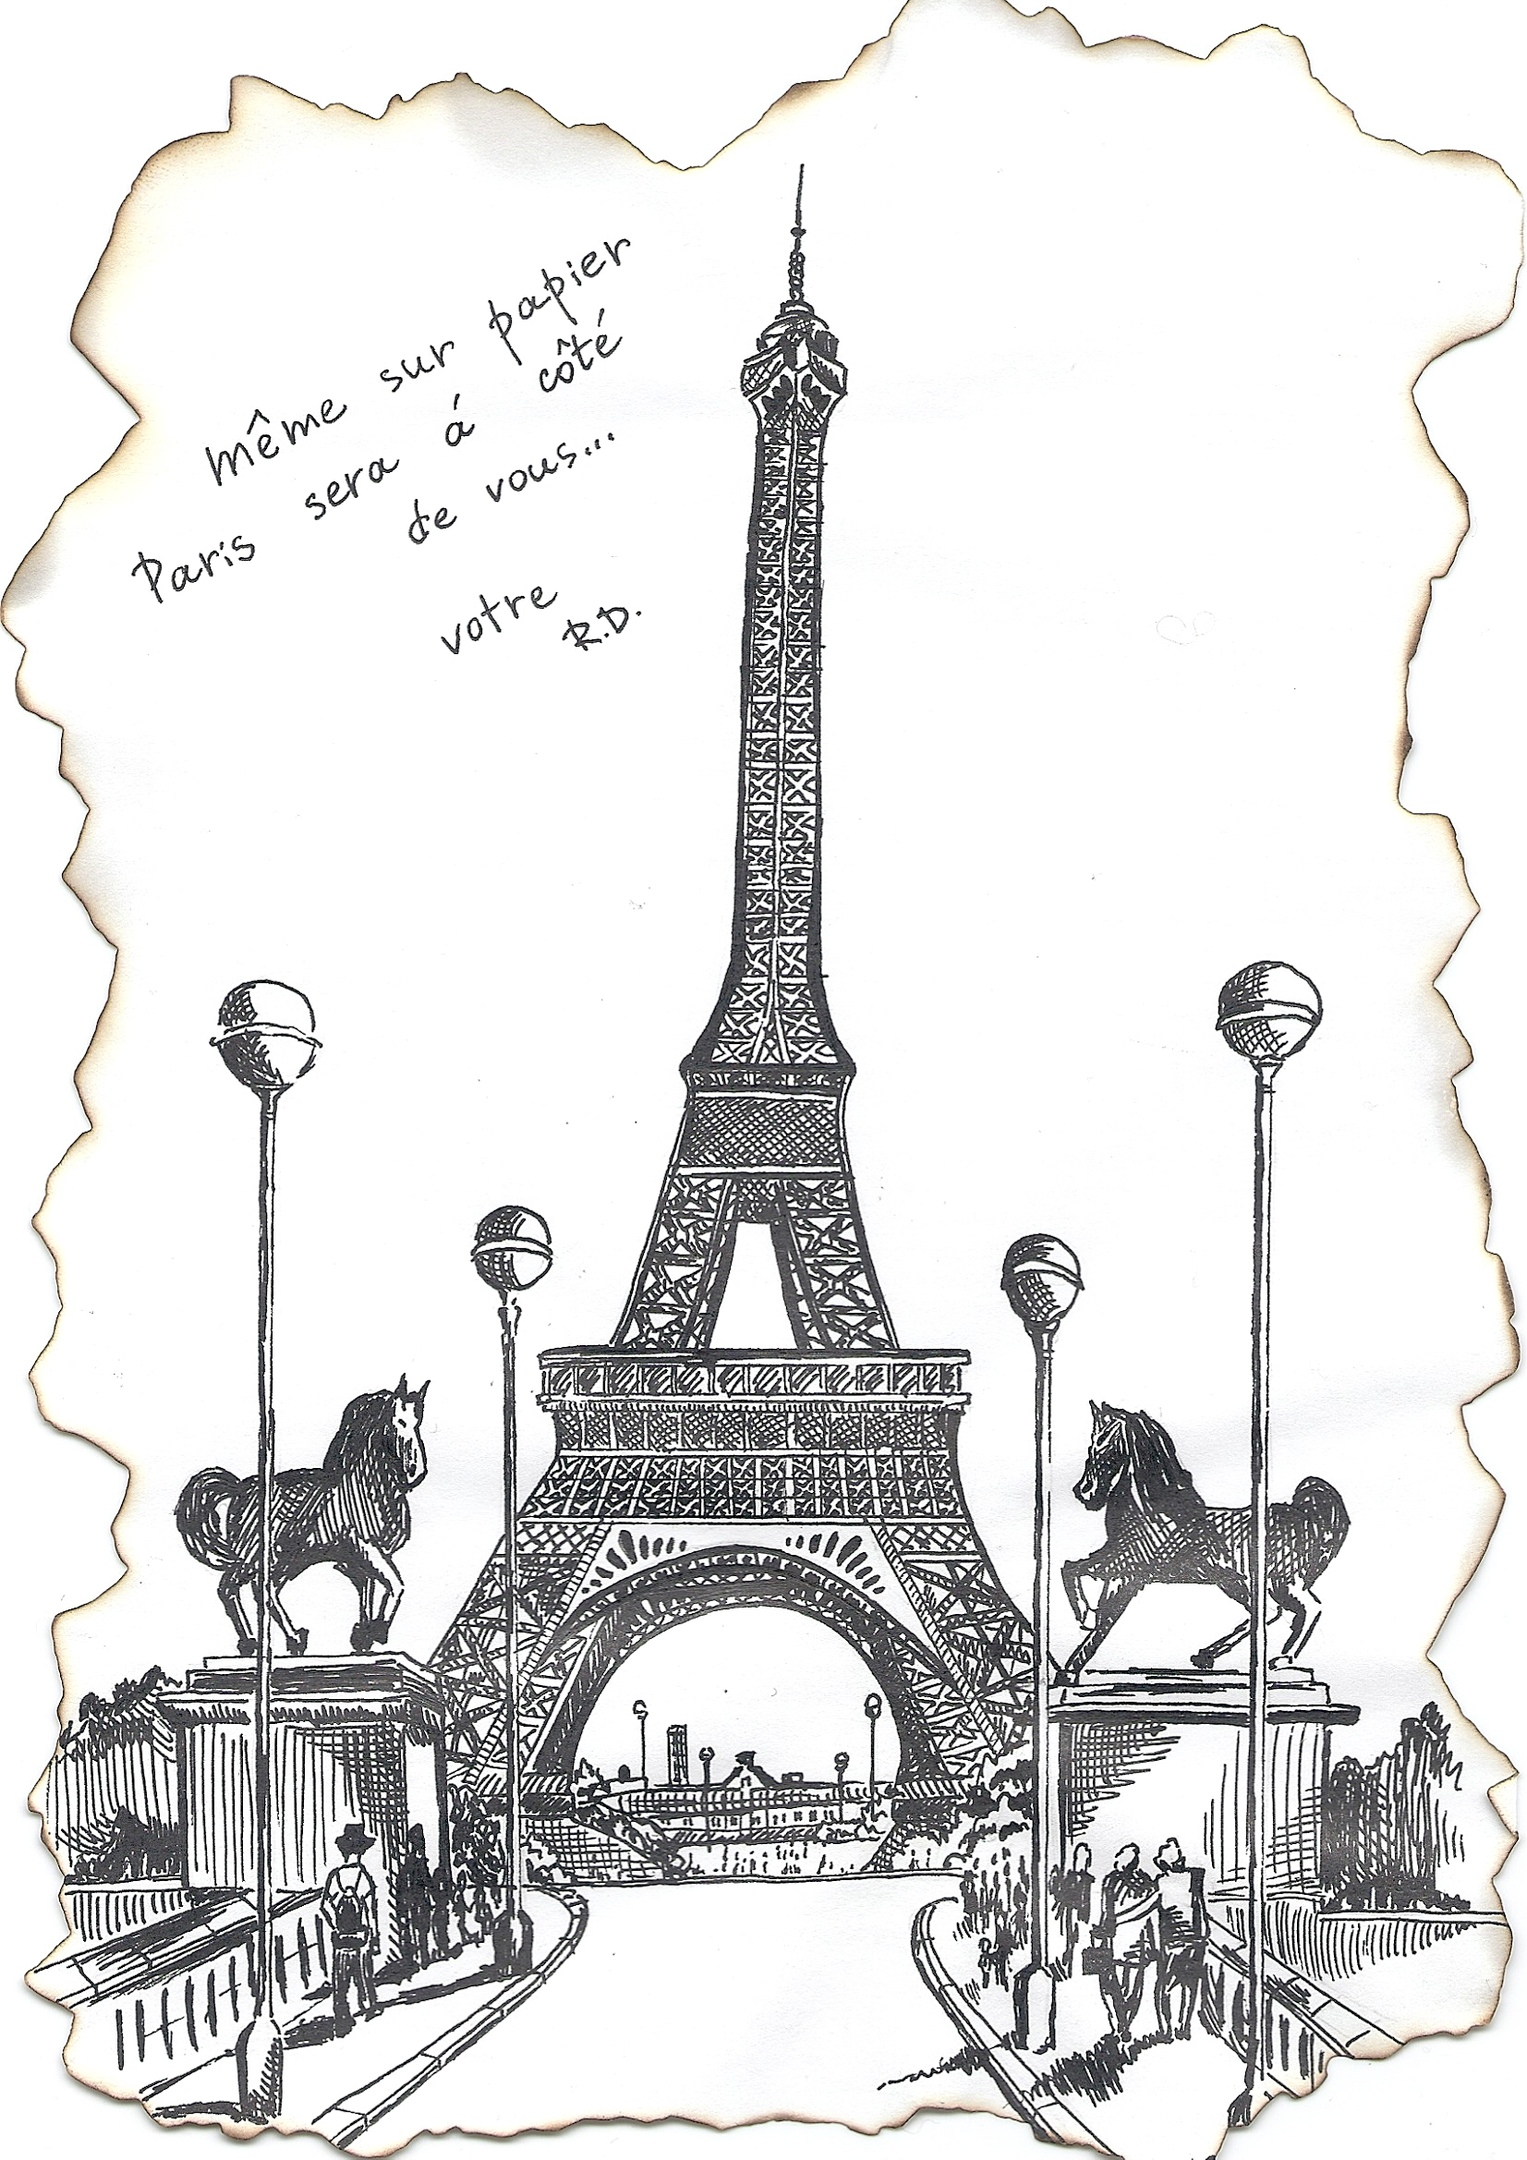 même sur papier
Paris sera á côté
de vous...
votre
R.D.